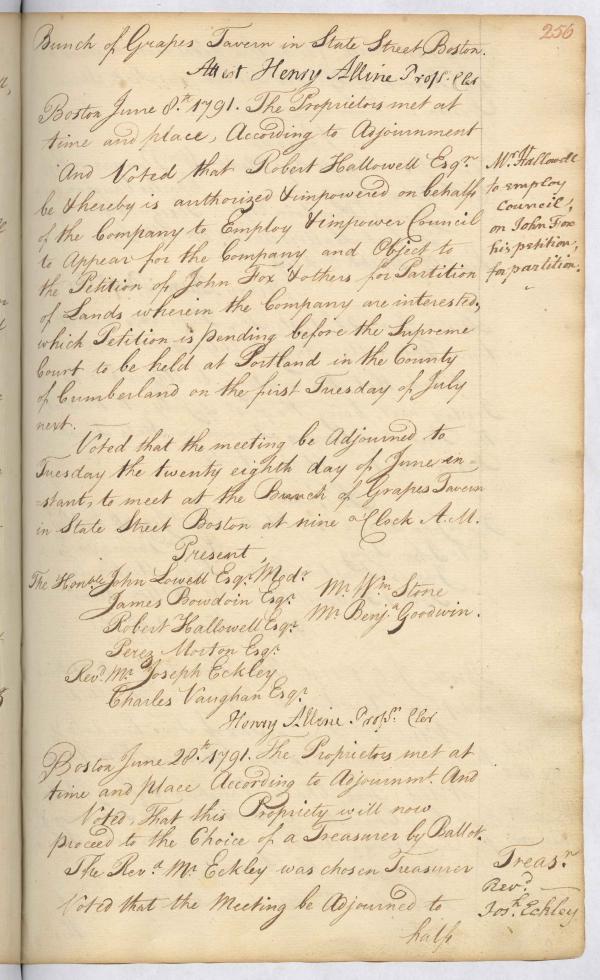 256
Bunch of Grapes Tavern in State Street, Boston.
Attest Henry Alline Props. Cler
Boston June 8.th 1791. The Proprietors met at
time and place, According to Adjournment
And Voted that Robert Hallowell Esqr.
be & hereby is authorized & impowered on behalf
of the Company to Employ & impower Council
to Appear for the Company and Object to
the Petition of John Fox & others for Partition
of Lands wherein the Company are interested,
which Petition is pending before the Supreme
Court to be held at Portland in the County
of Cumberland on the first Tuesday of July
next.
Mr. Hallowell
to employ
Council,
on John Fox
his petition,
for partition.
Voted that the meeting be Adjourned to
Tuesday the twenty eighth day of June in=
=stant, to meet at the Bunch of Grapes Tavern
in State Street Boston at nine o'Clock A.M.
Present
The Honble. John Lowell Esqr. Modr.
James Bowdoin Esqr.
Robert Hallowell Esqr.
Perez Morton Esqr.
Revd. Mr. Joseph Eckley
Charles Vaughan Esqr.
Mr. Wm. Stone
Mr. Benja. Goodwin.
Henry Alline Propr. Cler
Boston June 28.th 1791. The Proprietors met at
time and place According to Adjournmt. And
Voted, That this Propriety will now
proceed to the Choice of a Treasurer by Ballot.
The Revd. Mr. Eckley was chosen Treasurer
Treasr.
Revd.
Josh. Eckley
Voted that the Meeting be Adjourned to
half